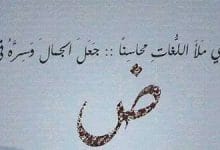 ي ملأَ اللُّغاتِ محاسِنًا :: جَعَلَ الجمالَ وَسِرَّهُ في
ض